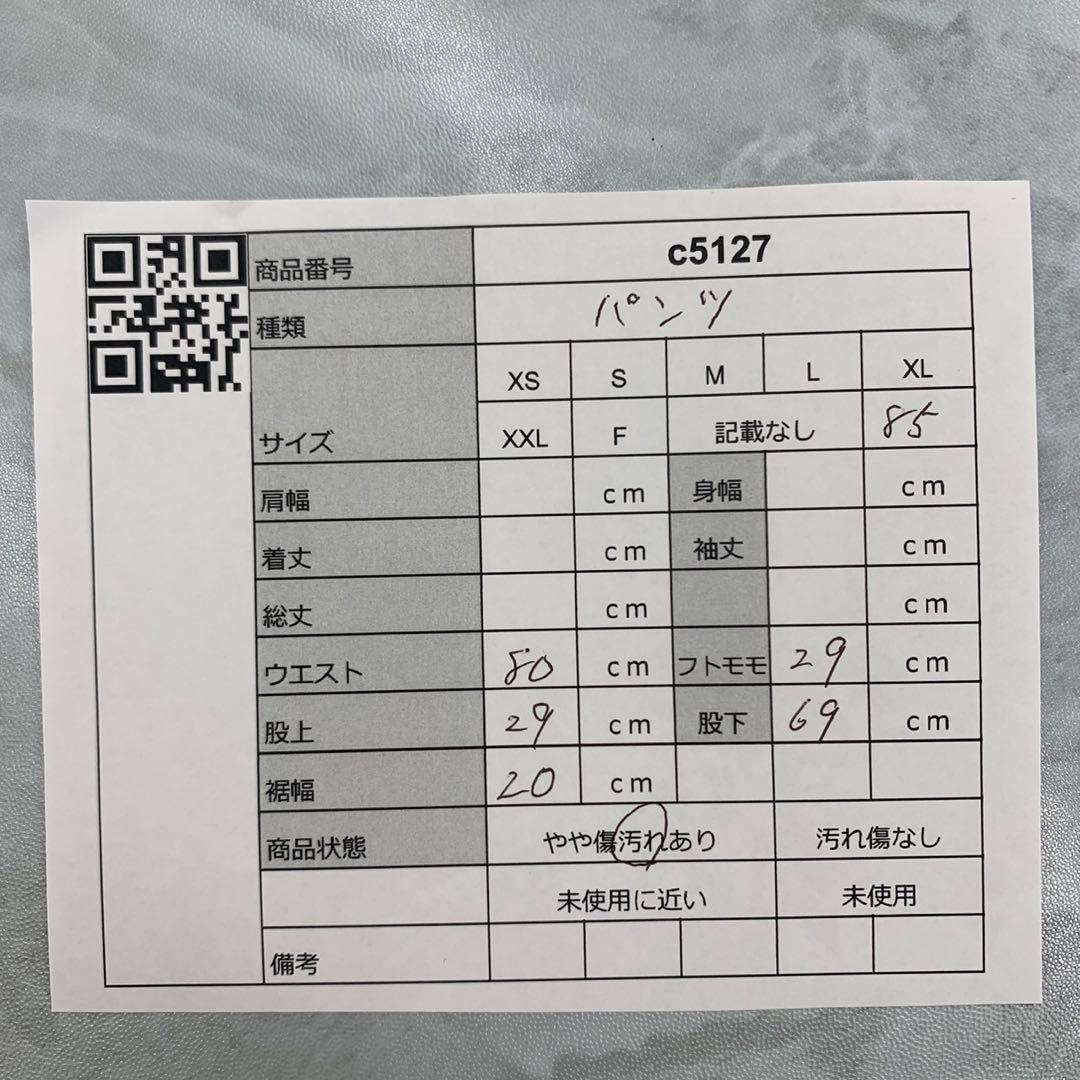 商品番号 c5127
種類 パンツ
XS S M L XL
サイズ XXL F 記載なし 85
肩幅 cm 身幅 cm
着丈 cm 袖丈 cm
総丈 cm cm
ウエスト 80 cm フトモモ 29 cm
股上 29 cm 股下 69 cm
裾幅 20 cm
商品状態 やや傷汚れあり 汚れ傷なし
未使用に近い 未使用
備考